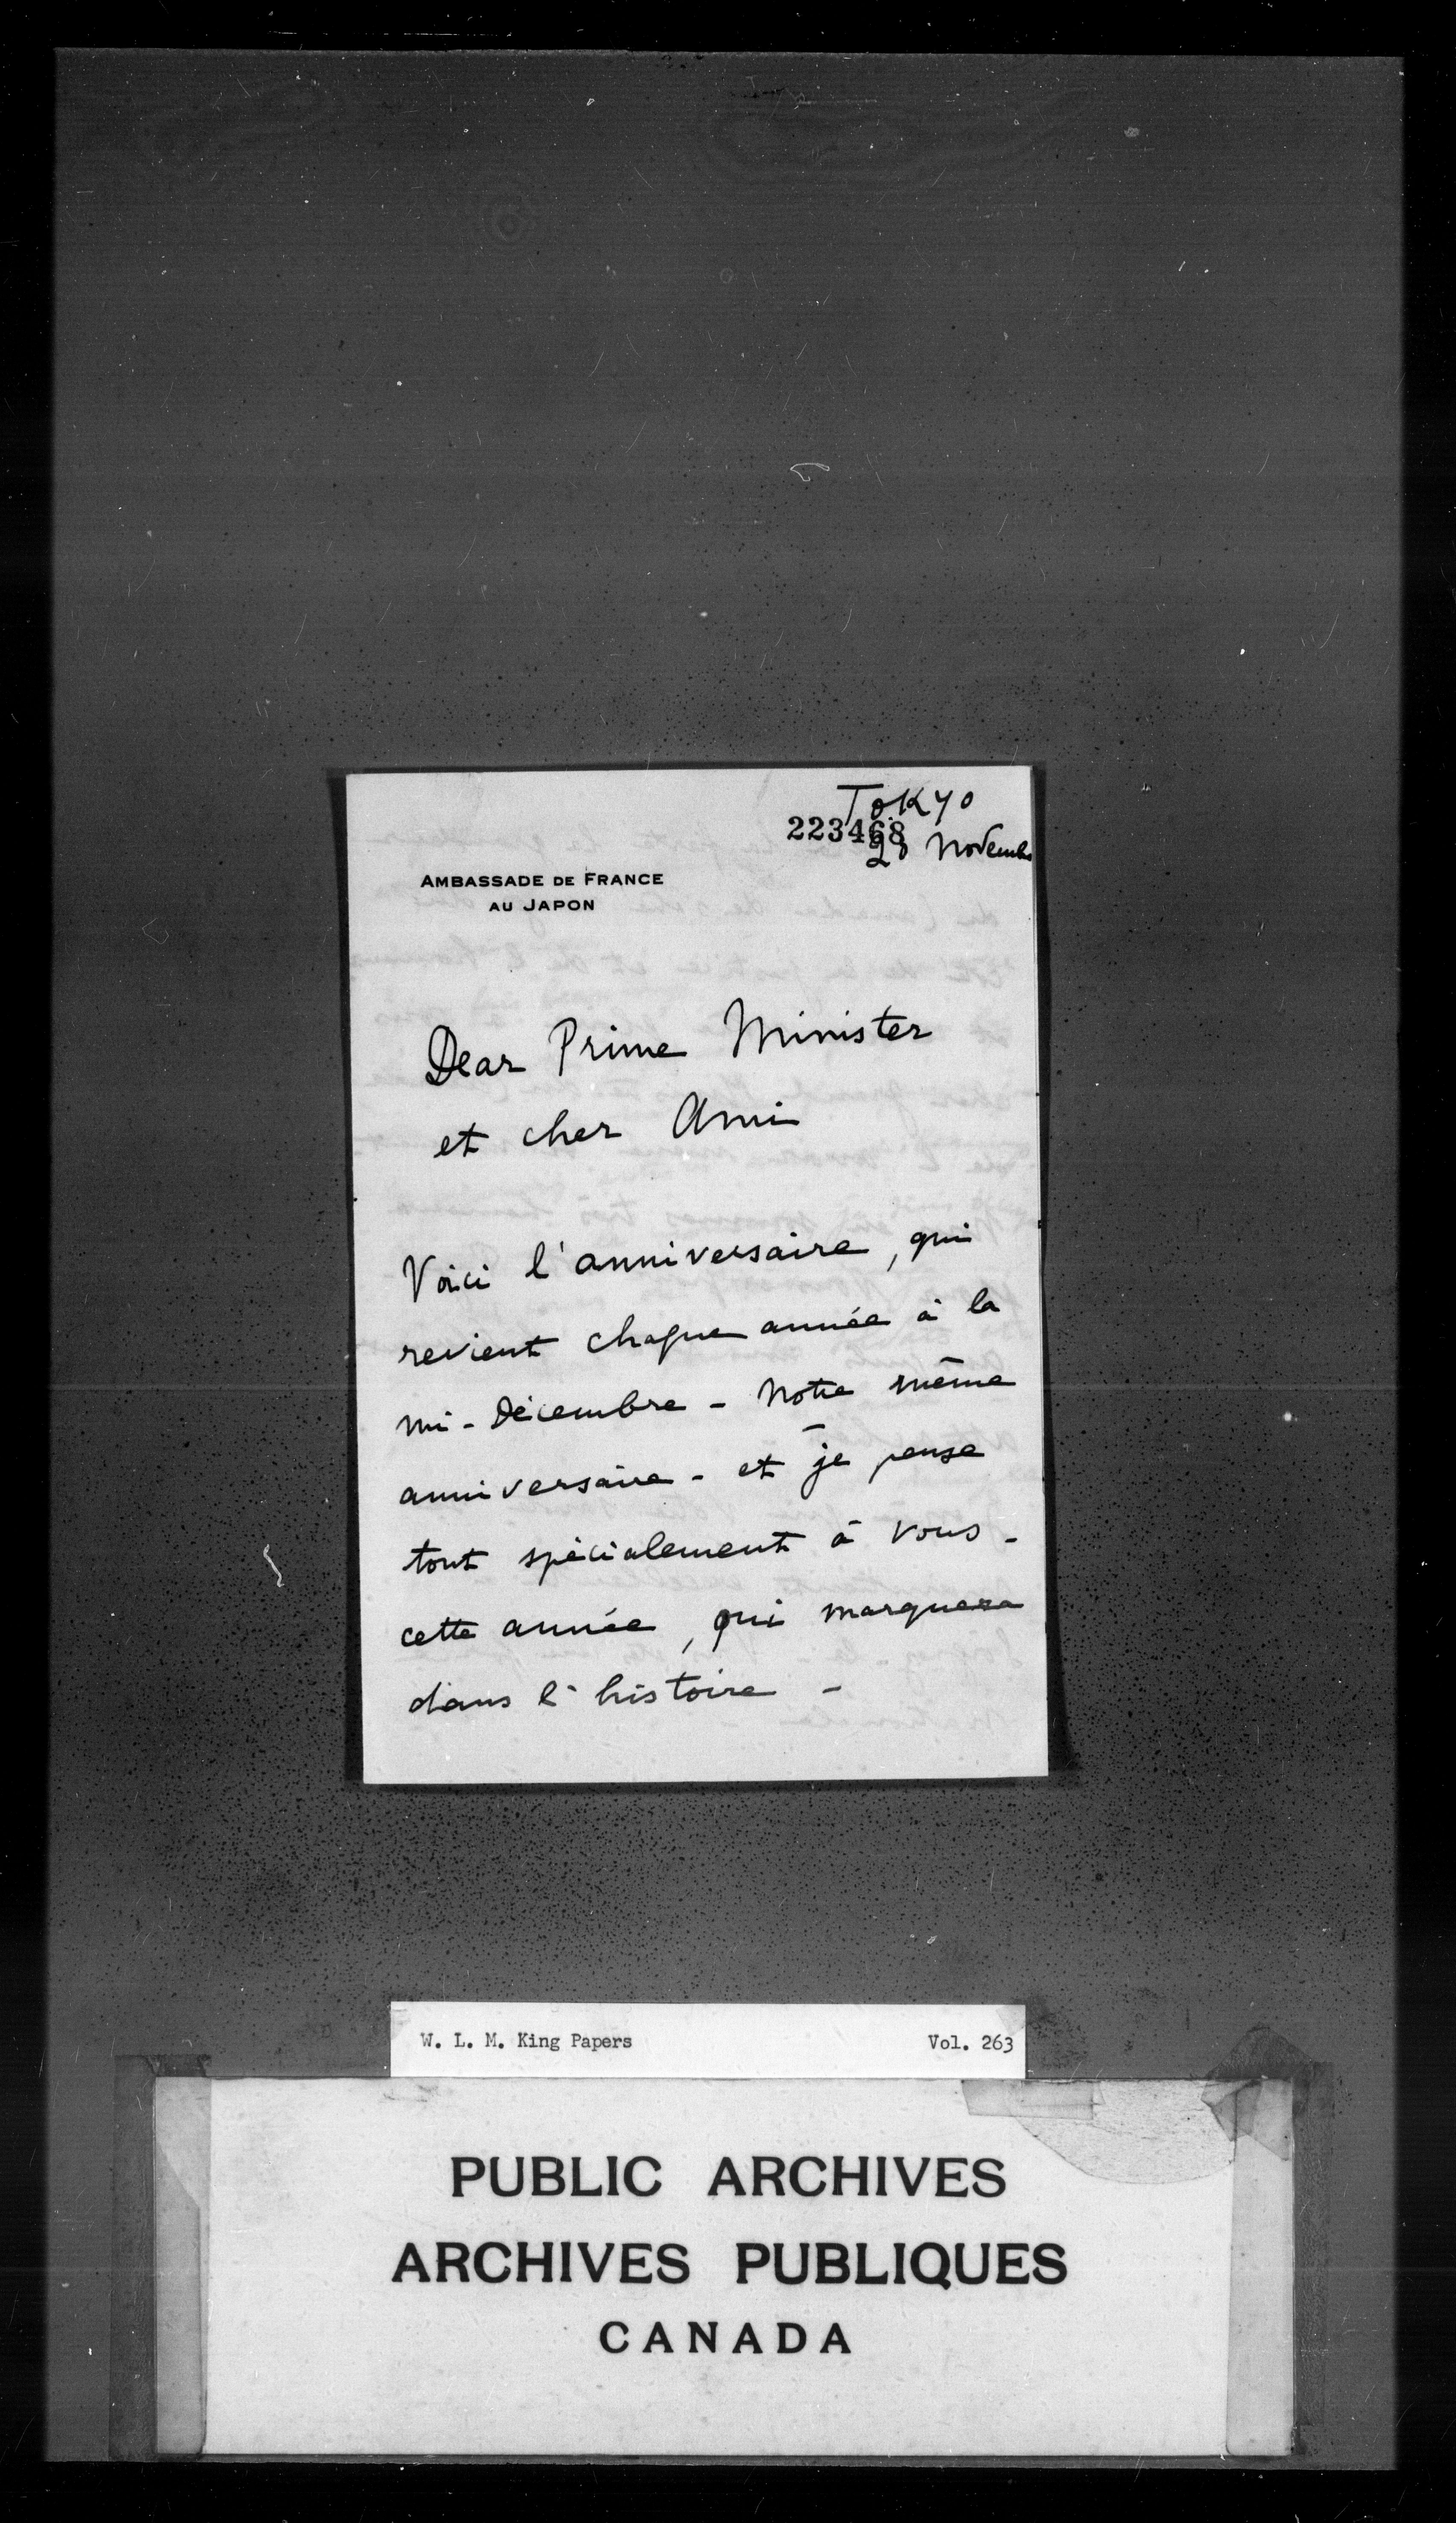 Tokyo
223468
28 Novembre
AMBASSADE DE FRANCE
AU JAPON
Dear Prime Minister
et cher Ami
Voici l'anniversaire, qui
revient chaque année à la
mi-Décembre - Notre même
anniversaire - et je pense
tout spécialement à vous -
cette année, qui marquera
dans l'histoire -
W. L. M. King Papers Vol. 263
PUBLIC ARCHIVES
ARCHIVES PUBLIQUES
CANADA